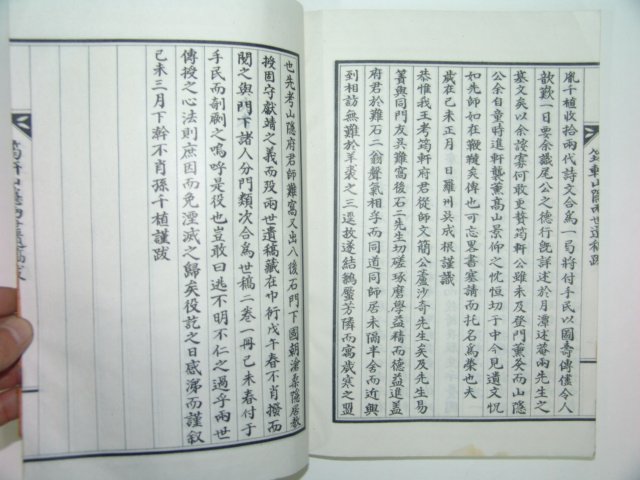 胤千植收拾兩代詩文合爲一局將付手民以圖壽傳儘令人
歆歎一日要余識尾公之德行旣詳述於月潭述菴兩先生之
墓文矣以余諛寡何敢更贅筠軒公雖未及登門薰炙而山隱
公余自童時進軒襲薰高山景仰之忱恒切于中今見遺文怳
如先師如在鞭韃矣俾也可忘畧書塞請而托名爲榮也夫
歲在己未正月 日羅州吳成根謹識
恭惟我王考筠軒府君從師文簡公蘆沙奇先生矣及先生易
簀與同門友吳難窩後石二先生切磋琢磨學益精而德益進蓋
府君於難石二翁聲氣相孚而同道同師居未隔半舍而近與
到相訪無難於羊裘之三還故遂結鵝鷖芳隣而寓歲寒之盟
也先考山隱府君師難窩又出入後石門下國朝滄桑隱居教
授固守獻靖之義而歿兩世遺稿藏在巾衍戊午春不肖撥而
閱之與門下諸人分門類次合爲世稿二卷一冊己未春付于
手民而剞劂之嗚呼是役也豈敢曰逃不明不仁之過乎兩世
傳授之心法則庶因而免湮滅之歸矣役訖之日感涕而謹叙
己未三月下幹不肖孫千植謹跋
筠軒山隱兩世遺稿跋